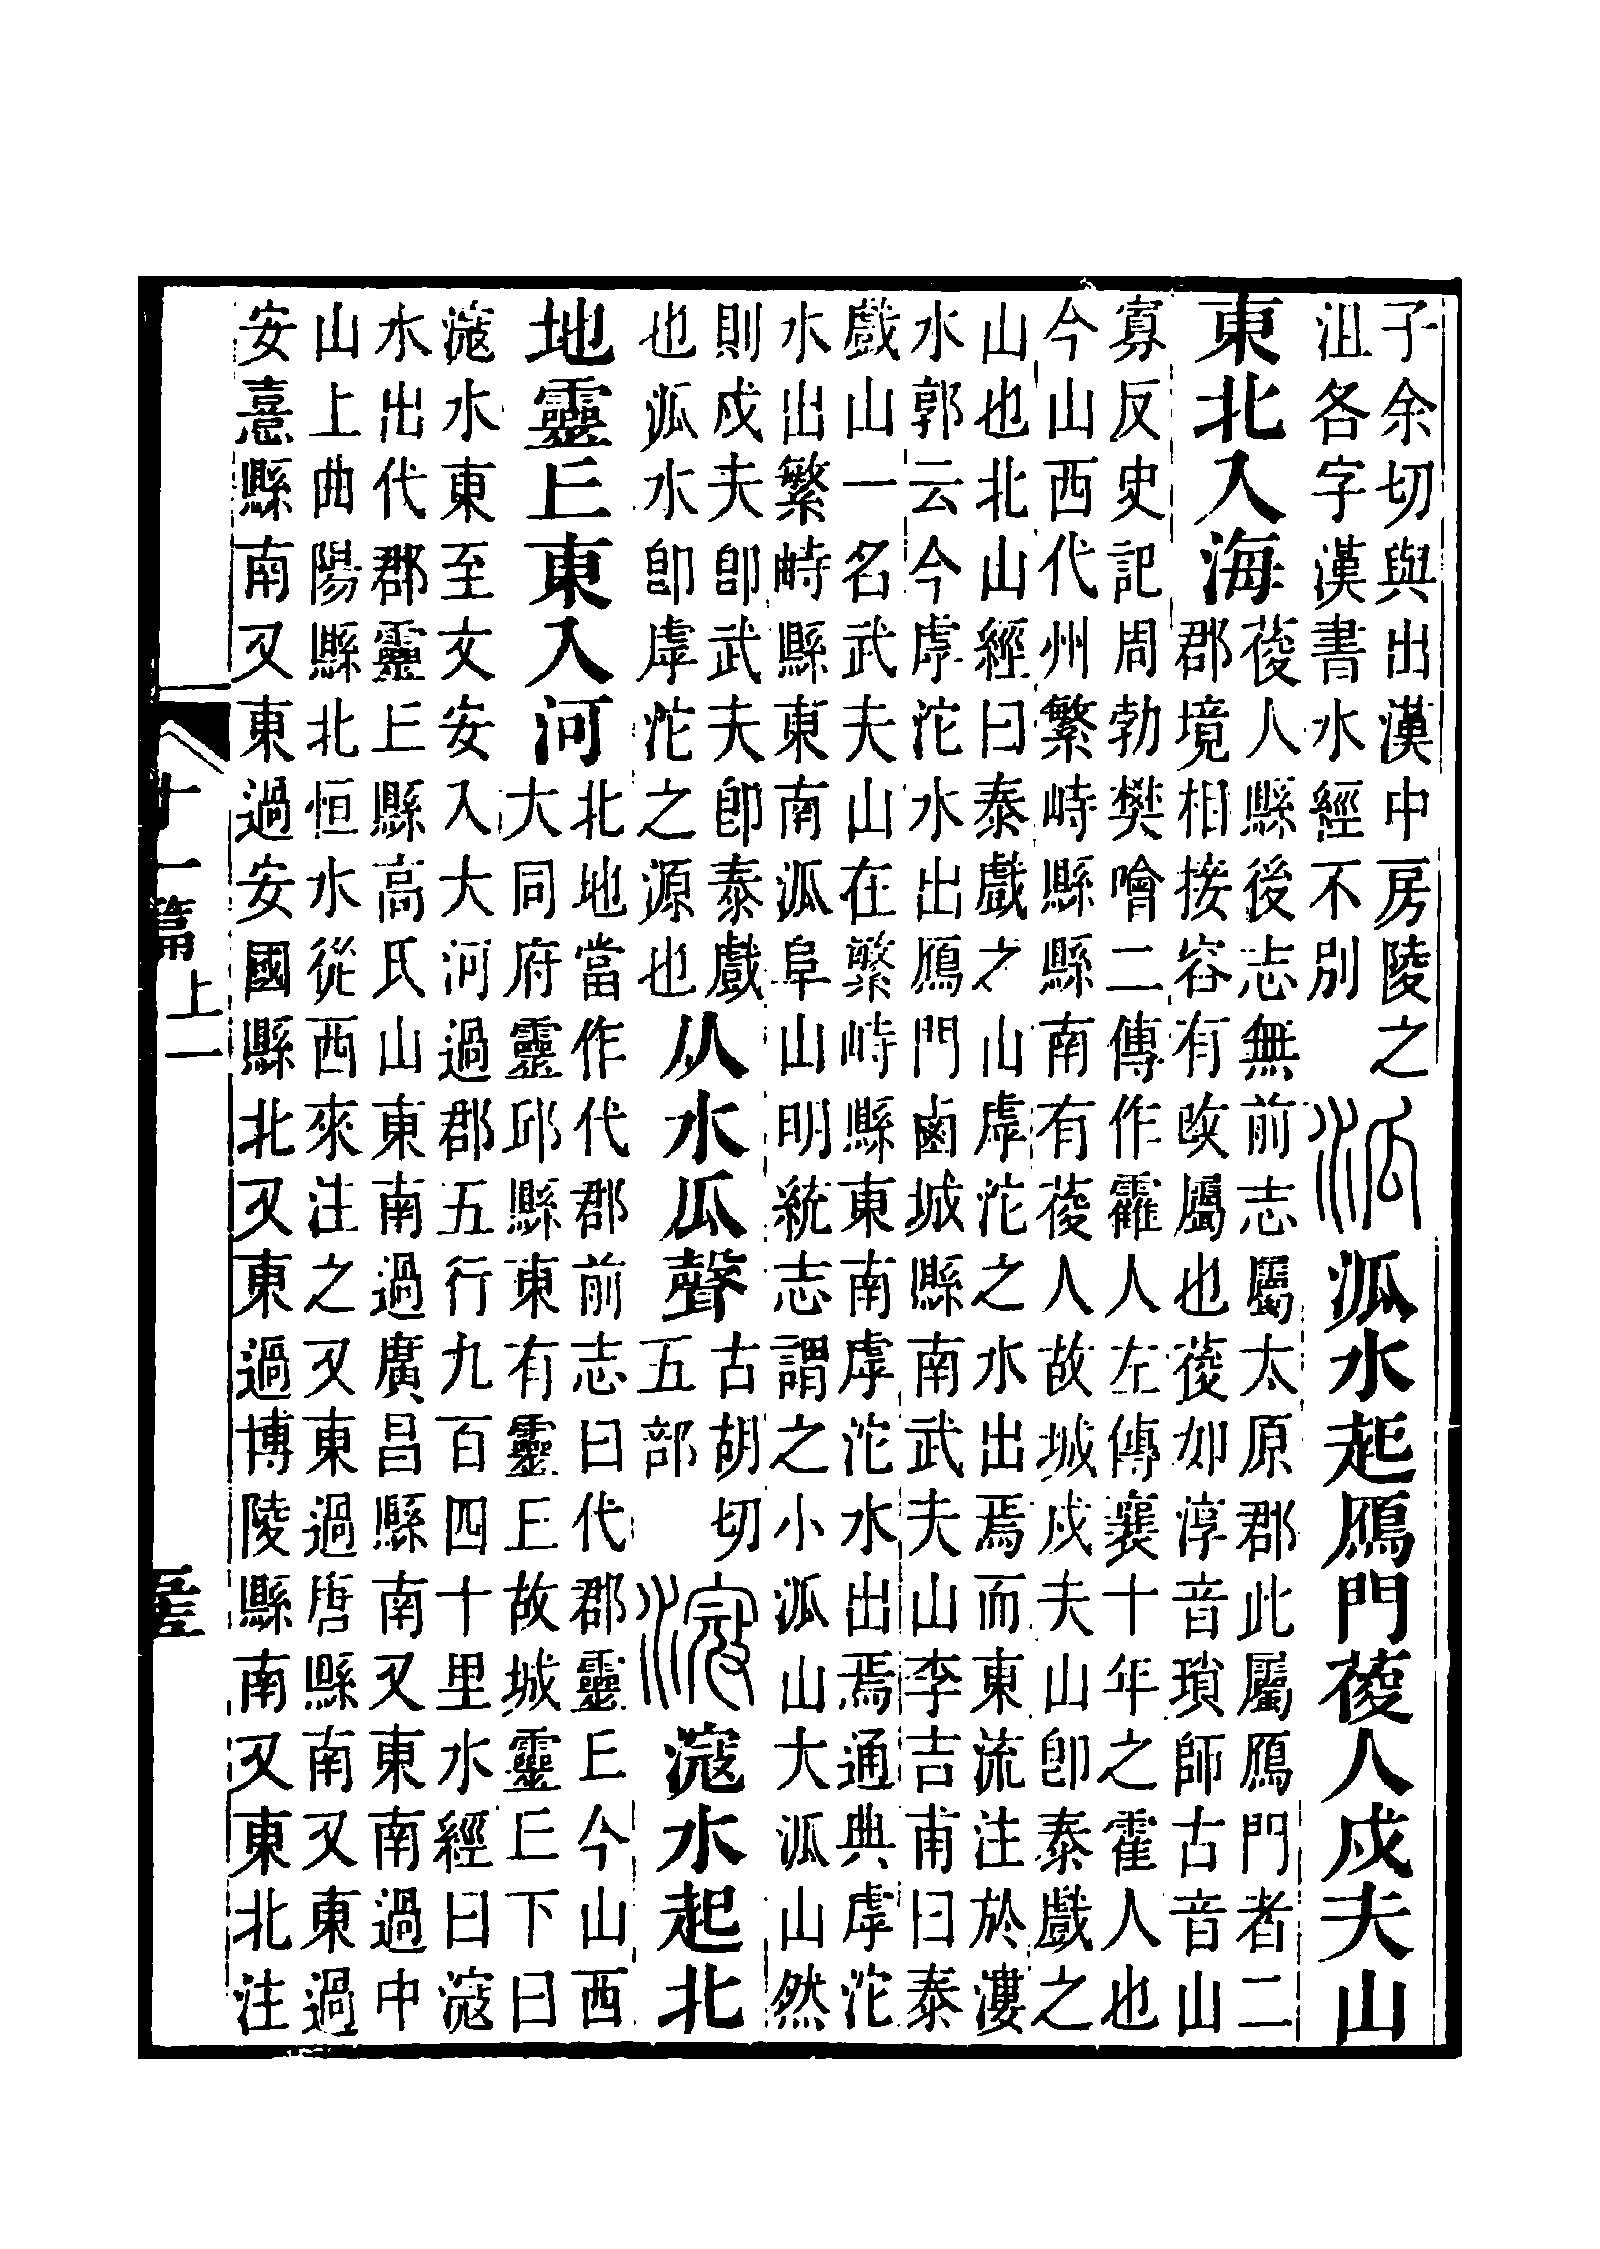 子余切與出漢中房陵之
沮各字漢書水經不別
泒水起鴈門葰人戍夫山
東北入海
葰人縣後志無前志屬太原郡此屬鴈門者二
郡境相接容有改屬也葰如淳音瑣師古音山
寡反史記周勃樊噲二傳作霍人左傳襄十年之霍人也
今山西代州繁峙縣縣南有葰人故城戍夫山卽泰戲之
山也北山經曰泰戲之山虖沱之水出焉而東流注於漊
水郭云今虖沱水出鴈門鹵城縣南武夫山李吉甫曰泰
戲山一名武夫山在繁峙縣東南虖沱水出焉通典虖沱
水出繁畤縣東南泒阜山明統志謂之小泒山大泒山然
則戍夫卽武夫卽泰戲
也泒水卽虖沱之源也
从水瓜聲
古胡切
五部
滱水起北
地靈丘東入河
北地當作代郡前志曰代郡靈丘今山西
大同府靈邱縣東有靈丘故城靈丘下曰
滱水東至文安入大河過郡五行九百四十里水經曰滱
水出代郡靈丘縣高氏山東南過廣昌縣南又東南過中
山上曲陽縣北恒水從西來注之又東過唐縣南又東過
安憙縣南又東過安國縣北又東過博陵縣南又東北注
十一篇上一